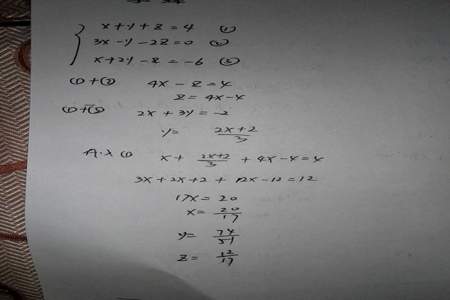 x+y+z=4 ①
3x-y-2z=0 ②
x+2y-z=-6 ③
①+② 4x-z=4
z=4x-4
①+③ 2x+3y=-2
y= 2x+2/3
① x+ 2x+2/3 +4x-4=4
3x+2x+2+12x-12=12
17x=20
x= 20/17
y= 74/51
z= 12/17